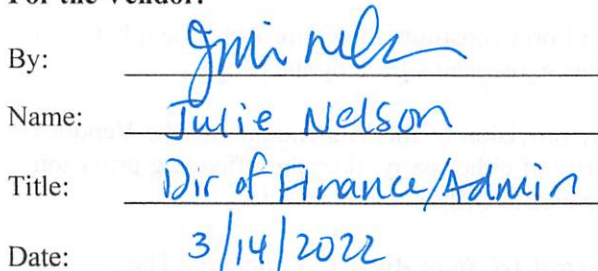 For the Vendor:
By:
Name: Julie Nelson
Title: Dir of Finance/Admin
Date: 3/14/2022